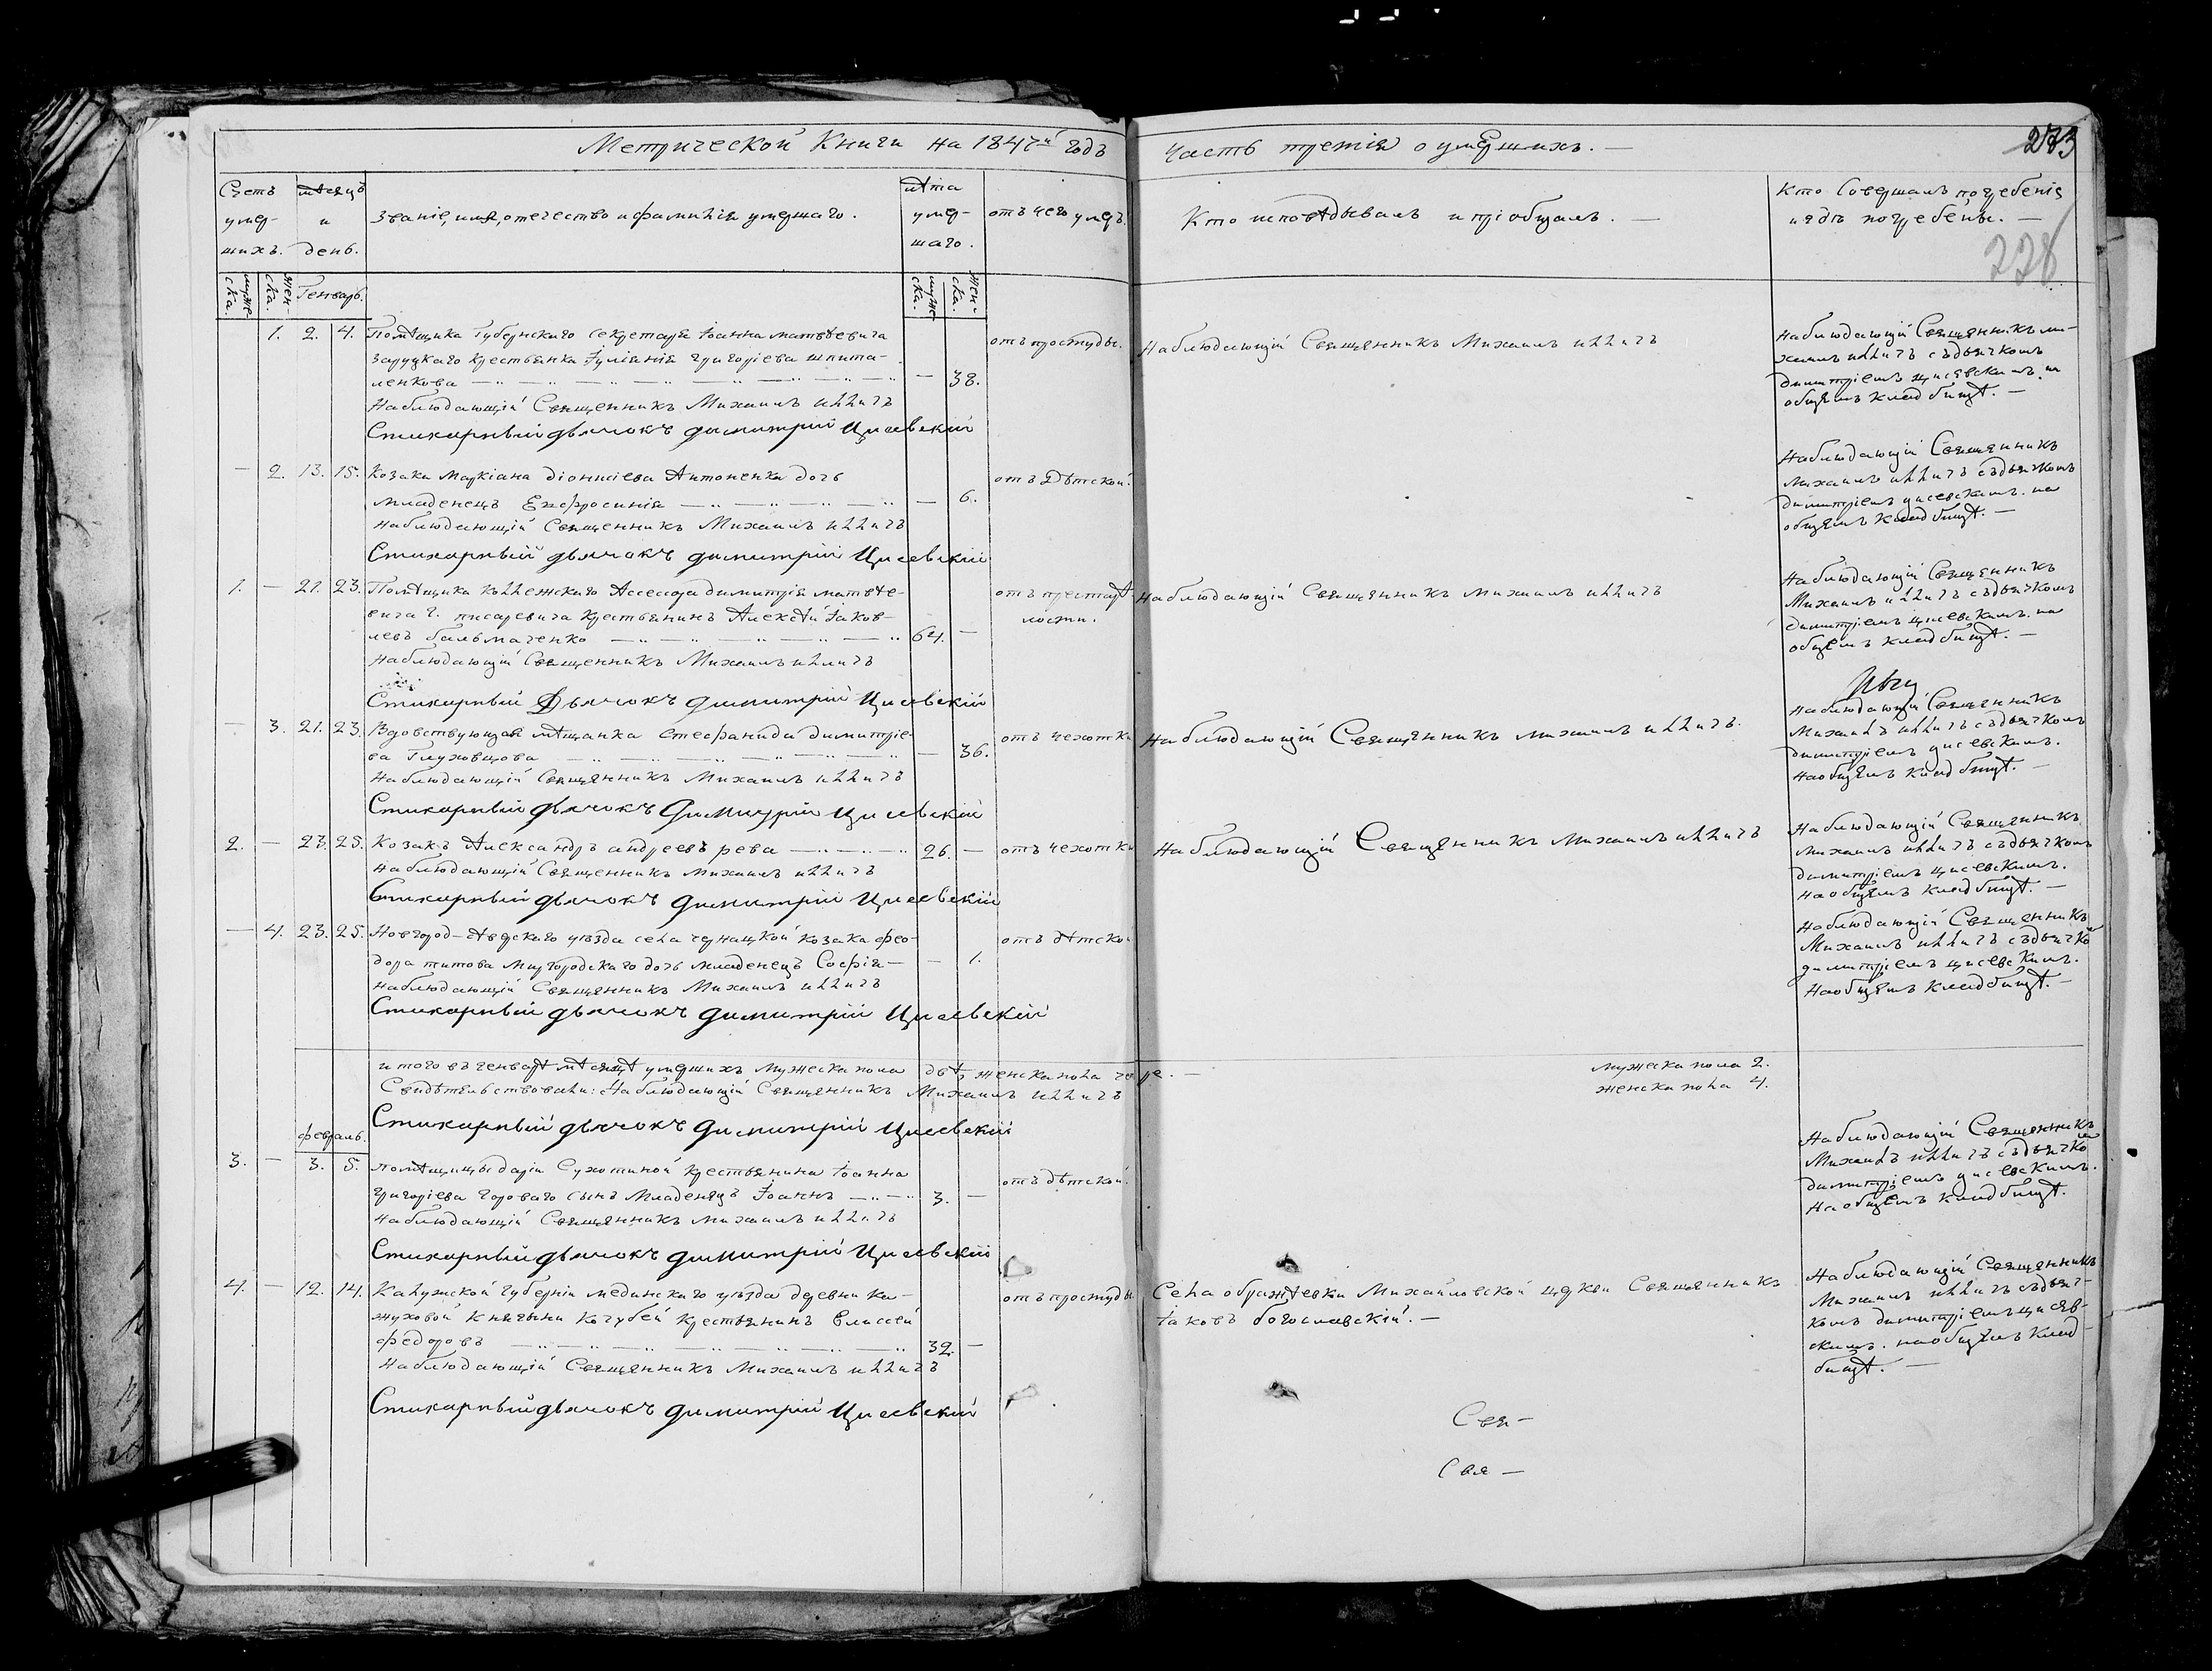 Метрической Книги на 1847й годъ
Часть третія о умершихъ. —
273
228
Счетъ умер-шихъ.
мѣсяцъ и день.
Званіе, имя, отечество и фамилія умершаго.
лѣта умер-шаго.
отъ чего умеръ.
Кто исповѣдывалъ и пріобщалъ. —
Кто Совершалъ погребеніе
и гдѣ погребены. —
муже-ска.
жен-ска.
Генварь.
муже-ска.
жен-ска.
1. 2. 4. Помѣщика Губернскаго Секретаря Іоанна матвѣевича
отъ простуды.
Наблюдающій Священникъ Михаилъ
Заруцкаго крестьянка Іуліанія григоріева шпита-
ленкова — 38.
Наблюдающій Священникъ Михаилъ
Стихарный дьячокъ димитрій Цисевскій
Наблюдающій Священникъ ми-
хаилъ съ дьячкомъ
димитріемъ цисевскимъ на
общемъ кладбищѣ. —
— 2. 13. 15. Козака маркіана діонисіева Антоненка дочь
отъ дѣтской.
младенецъ Ефросинія — 6.
наблюдающій Священникъ Михаилъ
Стихарный дьячокъ димитрій Цисевскій
Наблюдающій Священникъ
михаилъ съ дьячкомъ
димитріемъ цисевскимъ. на
общемъ кладбищѣ. —
1. — 21. 23. Помѣщика коллежскаго Ассесора димитрія матвѣе-
отъ престарѣ
лости.
Наблюдающій Священникъ михаилъ
вича г. писаревича крестьянинъ Алексѣй Іаков-
левъ бальмаченко 64. —
наблюдающій Священникъ Михаилъ
Стихарный Дьячокъ димитрій Цисевскій
Наблюдающій Священникъ
Михаилъ съ дьячкомъ
димитріемъ цисевскимъ. на
общемъ кладбищѣ. —
— 3. 21. 23. Вдовствующая мѣщанка Стефанида димитріе-
отъ чехотки
Наблюдающій Священникъ михаилъ
ва Глуховцова — 36.
Наблюдающій Священникъ Михаилъ
Стихарный дьячокъ Димитрій Цисевскій
Наблюдающій Священникъ
Михаилъ съ дьячкомъ
димитріемъ цисевскимъ.
На общемъ кладбищѣ. —
2. — 23. 25. Козакъ Александръ андреевъ рева 26. —
отъ чехотки
Наблюдающій Священникъ михаилъ
наблюдающій Священникъ михаилъ
Стихарный дьячокъ димитрій Цисевскій
Наблюдающій Священникъ
михаилъ съ дьячкомъ
димитріемъ цисевскимъ.
На общемъ кладбищѣ. —
— 4. 23. 25. Новгород-сѣверскаго уѣзда села чернацкой козака фео-
отъ дѣтской
дора титова миргородскаго дочь младенецъ Софія — — 1.
наблюдающій Священникъ Михаилъ
Стихарный дьячокъ димитрій Цисевскій
Наблюдающій Священникъ
Михаилъ съ дьячко
димитріемъ цисевскимъ.
На общемъ кладбищѣ. —
итого въ генварѣ мѣсяцѣ умершихъ мужеска пола двѣ, женска пола четыре. —
мужеска пола 2.
женска пола 4.
Свидѣтельствовали: Наблюдающій Священникъ Михаилъ
Стихарный дьячокъ димитрій Цисевскій
февраль.
3. — 3. 5. помѣщицы даріи Сухотиной крестьянина Іоанна
отъ дѣтской.
григоріева Горового сынъ младенецъ Іоаннъ 3. —
наблюдающій Священникъ михаилъ
Стихарный дьячокъ димитрій Цисевскій
Наблюдающій Священникъ
Михаилъ съ дьячко
димитріемъ цисевскимъ.
На общемъ кладбищѣ.
4. — 12. 14. Калужской Губерніи мединскаго уѣзда деревни ка-
отъ простуды
Села ображѣевки Михайловской церкви Священникъ
Іаковъ богославскій. —
жуховой княгини Кочубей крестьянинъ Влассей
федоровъ 32. —
Наблюдающій Священникъ Михаилъ
Стихарный дьячокъ димитрій Цисевскій
Наблюдающій Священникъ
Михаилъ съ дьяч-
комъ димитріемъ цисев-
скимъ. на общемъ клад-
бищѣ. —
Свя —
Свя —